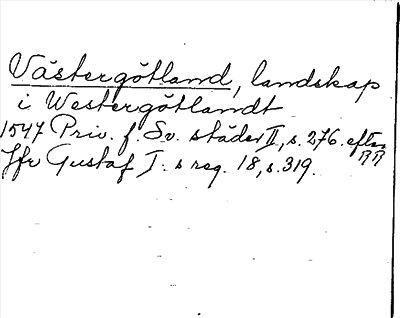 Västergötland, landskap
i Westergötlandt
1547 Priv. f. Sv. städer II, s. 276. efter RR
Jfr Gustaf I:s reg. 18, s. 319.